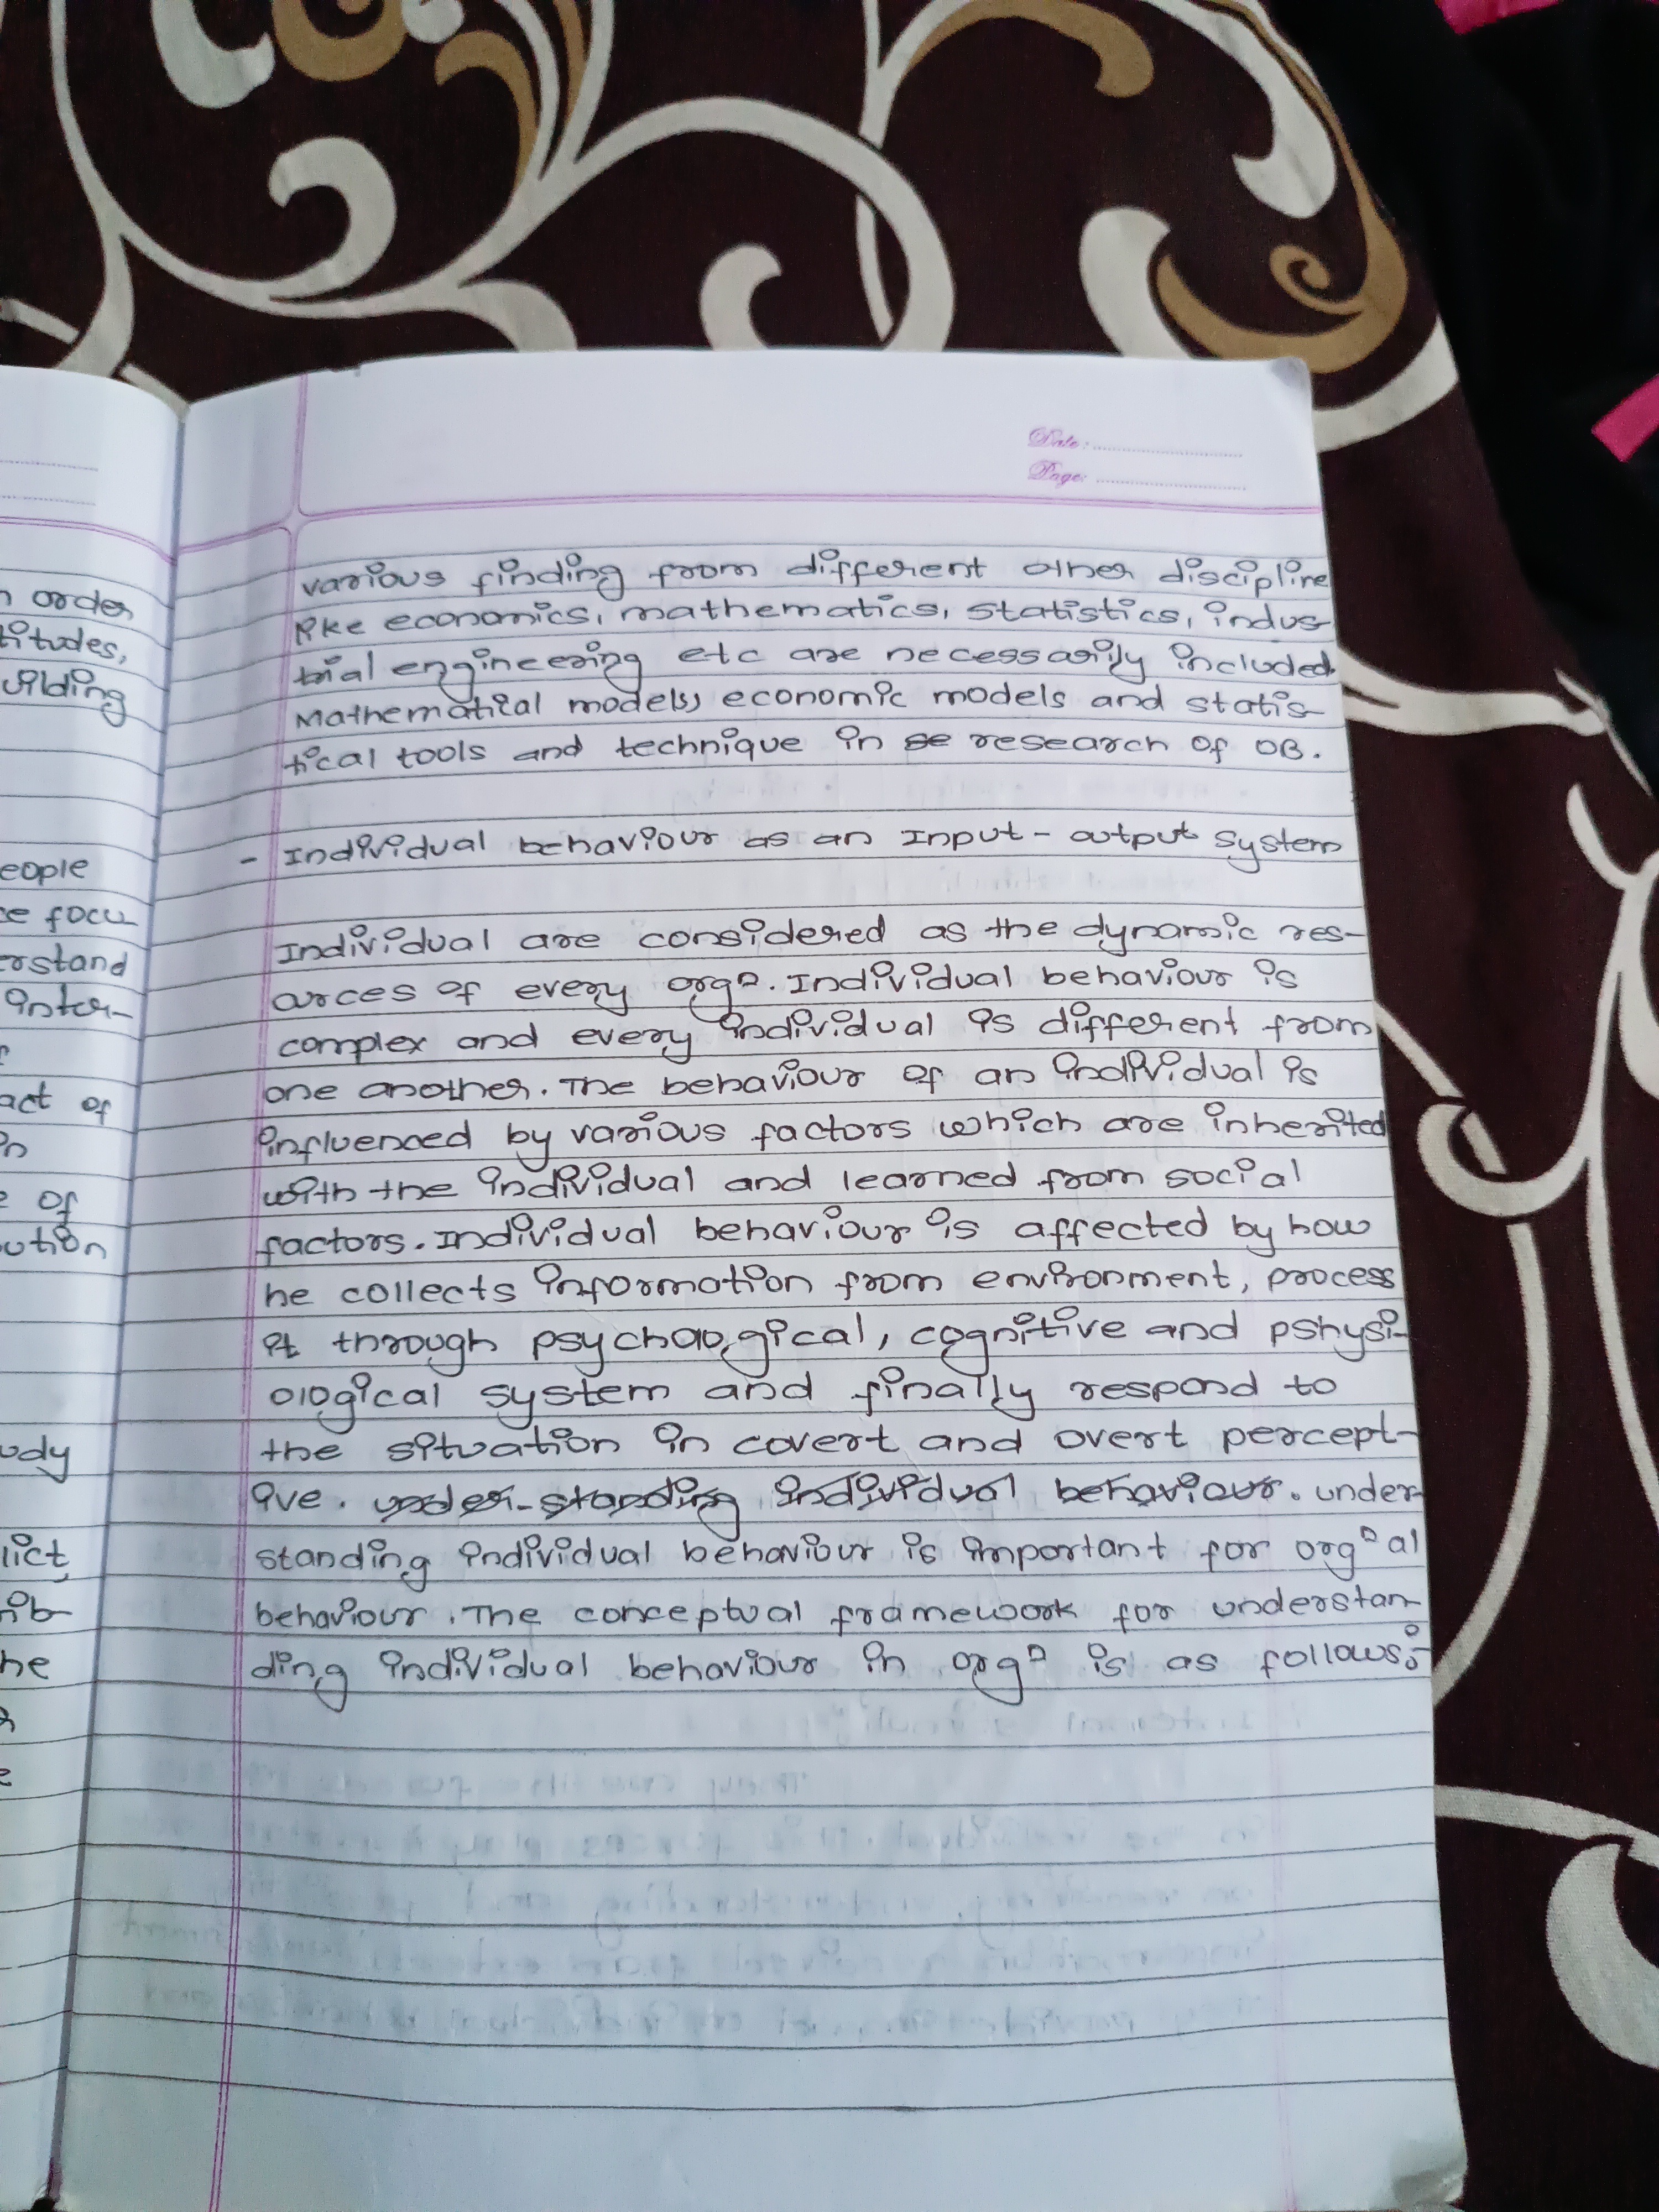 n order
titudes,
uilding
eople
ce focu
erstand
inter-
act of
in
e of
ution
udy
lict,
rib-
he
Date:
Page:
various finding from different other discipline
like economics, mathematics, statistics, indus-
trial engineering etc are necessarily included.
Mathematical models, economic models and statis-
tical tools and technique in se research of OB.
- Individual behaviour as an Input - output system
Individual are considered as the dynamic res-
ources of every orgⁿ. Individual behaviour is
complex and every individual is different from
one another. The behaviour of an individual is
influenced by various factors which are inherited
with the individual and learned from social
factors. Individual behaviour is affected by how
he collects information from environment, process
it through psychaological, cognitive and pshysi-
ological system and finally respond to
the situation in covert and overt percept-
ive. under-standing individual behaviour. under-
standing individual behaviour is important for orgⁿal
behaviour. The conceptual framework for understan-
ding individual behaviour in orgⁿ is as follows:-